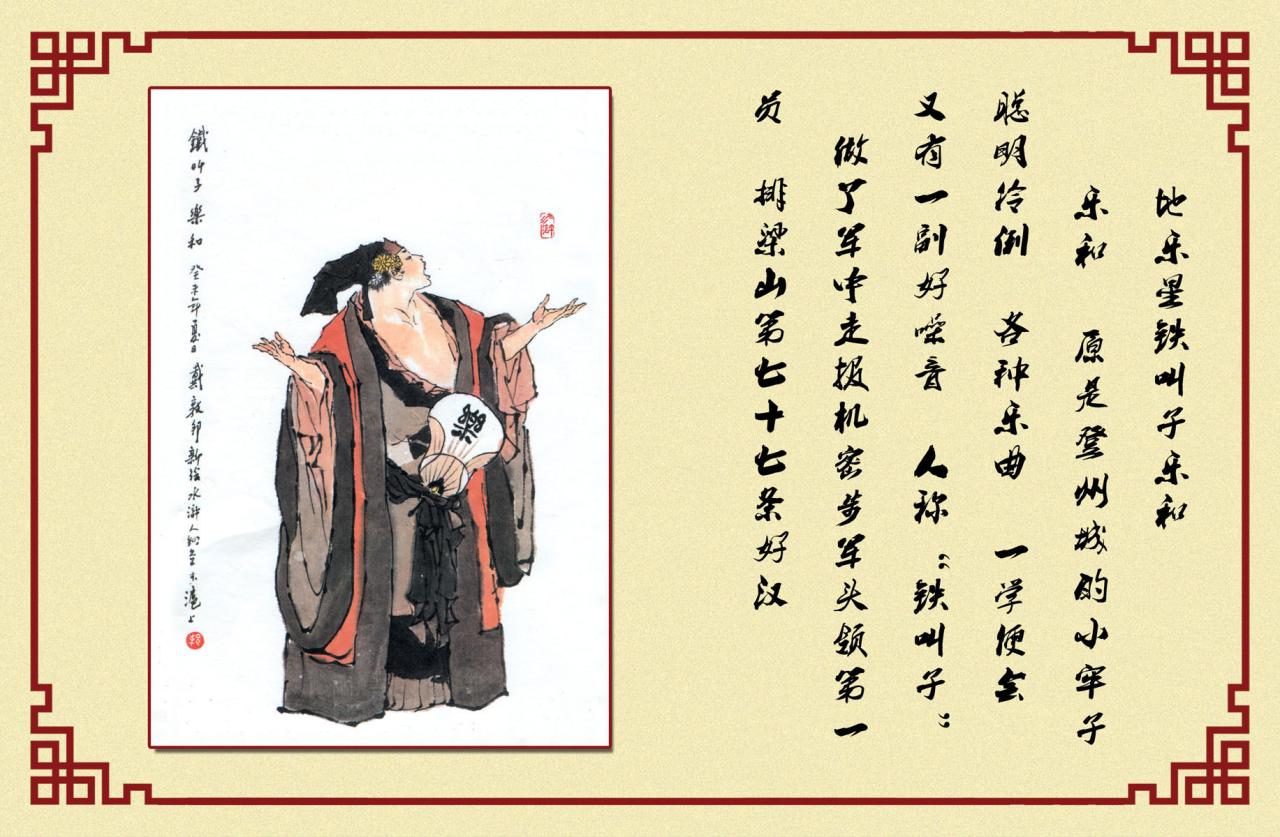 地乐星铁叫子乐和
乐和 原是登州城的小牢子
聪明冷俐 各种乐曲 一学便会
又有一副好嗓音 人称“铁叫子”
做了军中走报机密步军头领第一
员 排梁山第七十七条好汉
鐵叫子 樂和 癸未年夏日 戴敦邦新绘水滸人物
樂